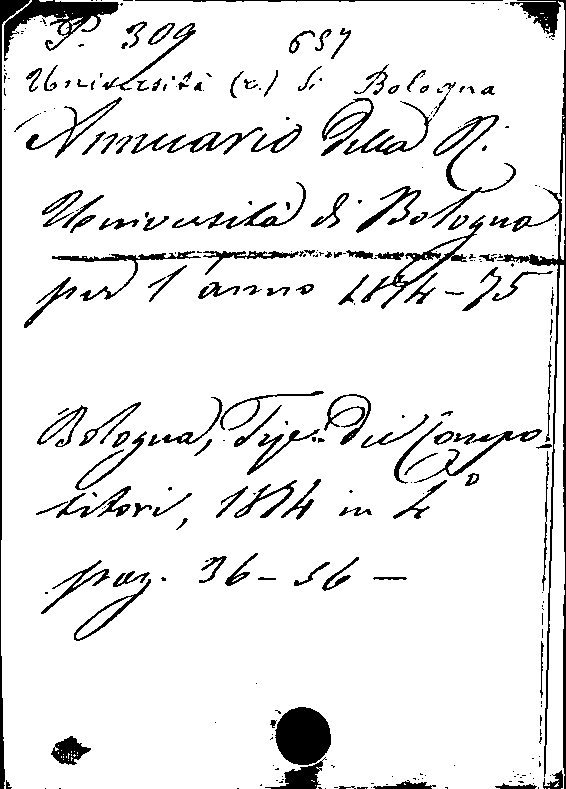 P. 309 657
Università (r.) di Bologna
Annuario della R.
Università di Bologna
per l'anno 1874-75
Bologna, Tip. dei Compo-
sitori, 1874 in 4°
pag. 36-56 —